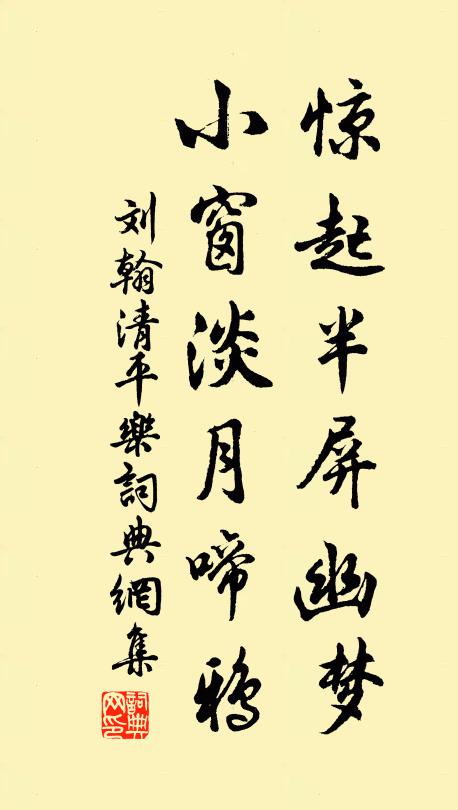 惊起半屏幽梦
小窗淡月啼鸦
刘翰清平樂詞典網集
詞典网印